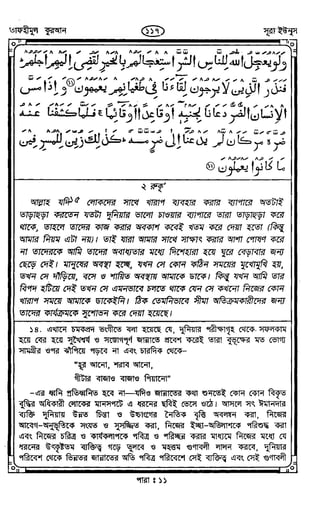 তাফহীমুল কুরআন
১১৭
সূরা ইউনুস
وَلَوْ يُعَجِّلُ اللهُ لِلنَّاسِ الشَّرَّ اسْتِعْجَالَهُمْ بِالْخَيْرِ لَقُضِيَ إِلَيْهِمْ أَجَلُهُمْ
فَنَذَرُ الَّذِينَ لَا يَرْجُونَ لِقَاءَنَا فِي طُغْيَانِهِمْ يَعْمَهُونَ ۝ وَإِذَا مَسَّ
الْإِنْسَانَ الضُّرُّ دَعَانَا لِجَنْبِهِ أَوْ قَاعِدًا أَوْ قَائِمًا فَلَمَّا كَشَفْنَا عَنْهُ
ضُرَّهُ مَرَّ كَأَنْ لَمْ يَدْعُنَا إِلَى ضُرٍّ مَسَّهُ كَذَلِكَ زُيِّنَ لِلْمُسْرِفِينَ
مَا كَانُوا يَعْمَلُونَ ۝
২ রুকু'
আল্লাহ যদি১৫ লোকদের সাথে খারাপ ব্যবহার করার ব্যাপারে অতটাই
তাড়াহুড়া করতেন যতটা দুনিয়ার ভালো চাওয়ার ব্যাপারে তারা তাড়াহুড়া করে
থাকে, তাহলে তাদের কাজ করার অবকাশ কবেই খতম করে দেয়া হতো (কিন্তু
আমার নিয়ম এটা নয়)। তাই যারা আমার সাথে সাক্ষাৎ করার আশা পোষণ করে
না তাদেরকে আমি তাদের অবাধ্যতার মধ্যে দিশেহারা হয়ে ঘুরে বেড়াবার জন্য
ছেড়ে দেই। মানুষের অবস্থা হচ্ছে, যখন সে কোন কঠিন সময়ের মুখোমুখি হয়,
তখন সে দাঁড়িয়ে, বসে ও শায়িত অবস্থায় আমাকে ডাকে। কিন্তু যখন আমি তার
বিপদ হটিয়ে দেই তখন সে এমনভাবে চলতে থাকে যেন সে কখনো নিজের কোন
খারাপ সময়ে আমাকে ডাকেইনি। ঠিক তেমনিভাবে সীমা অতিক্রমকারীদের জন্য
তাদের কার্যক্রমকে সুশোভন করে দেয়া হয়েছে।
১৪. এখানে চমকপ্রদ ভংগীতে বলা হয়েছে যে, দুনিয়ার পরীক্ষাগৃহ থেকে সফলকাম
হয়ে বের হয়ে সুখৈশ্বর্য ও সম্ভোগপূর্ণ জান্নাতে প্রবেশ করেই তারা বুভুক্ষের মত ভোগ্য
সামগ্রীর ওপর ঝাঁপিয়ে পড়বে না এবং চারদিক থেকে–
"হুর আনো, শরাব আনো,
গীটার বাজাও বাজাও পিয়ানো"
–এর ধ্বনি প্রতিধ্বনিত হবে না–যদিও জান্নাতের কথা শুনতেই কোন কোন বিকৃত
বুদ্ধির অধিকারী লোকের মানসপটে এ ধরনের ছবিই ভেসে ওঠে। আসলে সৎ ঈমানদার
ব্যক্তি দুনিয়ায় উন্নত চিন্তা ও উচ্চাংগের নৈতিক বৃত্তি অবলম্বন করা, নিজের
আবেগ-অনুভূতিকে সংযত ও সুসজ্জিত করা, নিজের ইচ্ছা-অভিলাশকে পরিশুদ্ধ করা
এবং নিজের চরিত্র ও কার্যকলাপকে পবিত্র ও পরিচ্ছন্ন করার মাধ্যমে নিজের মধ্যে যে
ধরনের উৎকৃষ্টতম ব্যক্তিত্ব গড়ে তুলবে ও মহত্তম গুণাবলী লালন করবে, দুনিয়ার
পরিবেশ থেকে ভিন্নতর জান্নাতের অতি পবিত্র পরিবেশে সেই ব্যক্তিত্ব এবং সেই গুণাবলী
পারা : ১১